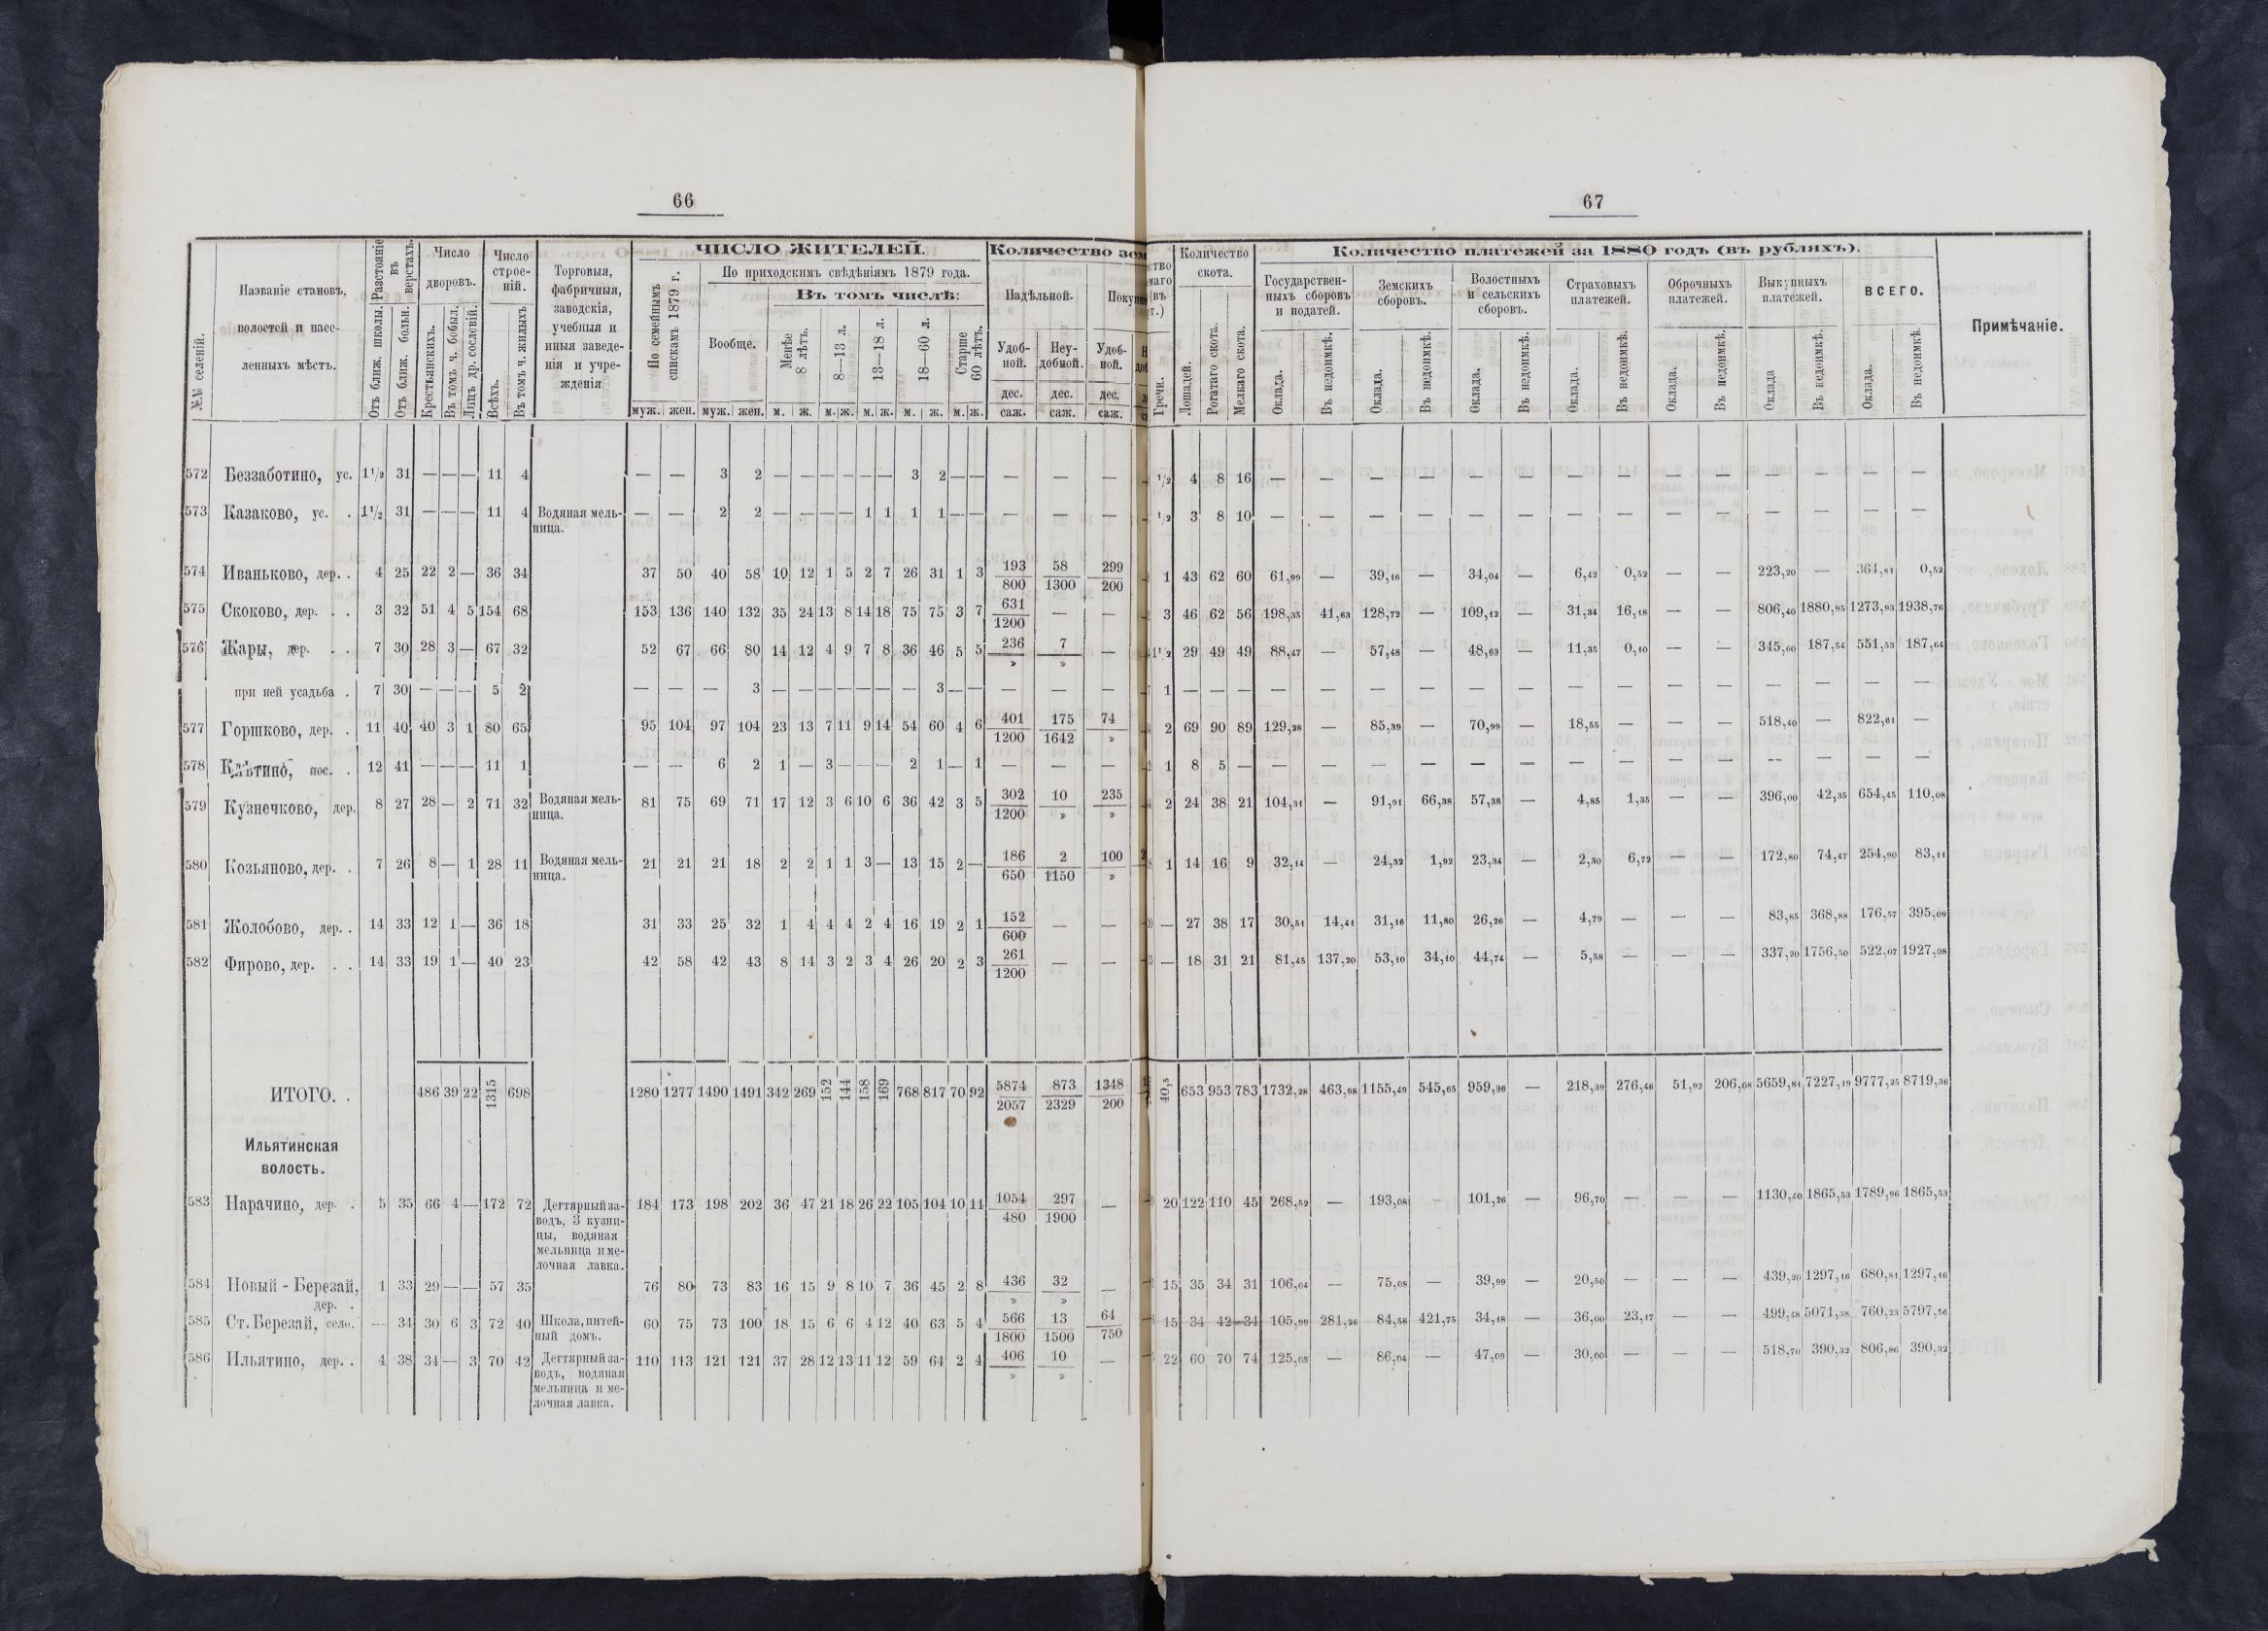 66
№№ селеній.
Названіе становъ,
волостей и насе-
ленныхъ мѣстъ.
Разстояніе въ верстахъ.
Отъ ближ. школы.
Отъ ближ. больн.
Число дворовъ.
Крестьянскихъ.
Въ томъ ч. бобыл.
Лицъ др. сословій.
Число строе-
ній.
Всѣхъ.
Въ томъ ч. жилыхъ
Торговыя,
фабричныя,
заводскія,
учебныя и
иныя заведе-
нія и учре-
жденія
ЧИСЛО ЖИТЕЛЕЙ.
По семейнымъ спискамъ 1879 г.
По приходскимъ свѣдѣніямъ 1879 года.
Вообще.
Въ томъ числѣ:
Менѣе 8 лѣтъ.
8—13 л.
13—18 л.
18—60 л.
Старше 60 лѣтъ.
муж. жен. муж. жен. м. ж. м. ж. м. ж. м. ж. м. ж.
Количество зем
Надѣльной.
Удоб-
ной.
Неу-
добной.
Удоб-
ной.
дес. дес. дес.
саж. саж. саж.
572 Беззаботино, ус. 1½ 31 — — — 11 4 — — 3 2 — — — — — — 3 2 — — — — —
573 Казаково, ус. . 1½ 31 — — — 11 4 Водяная мель-
ница. — — 2 2 — — — — 1 1 1 1 — — — — —
574 Иваньково, дер. . 4 25 22 2 — 36 34 37 50 40 58 10 12 1 5 2 7 26 31 1 3 193/800 58/1300 299/200
575 Скоково, дер. . . 3 32 51 4 5 154 68 153 136 140 132 35 24 13 8 14 18 75 75 3 7 631/1200 — —
576 Жары, дер. . . 7 30 28 3 — 67 32 52 67 66 80 14 12 4 9 7 8 36 46 5 5 236/» 7/» —
при ней усадьба . 7 30 — — — 5 2 — — — 3 — — — — — — — 3 — — — — —
577 Горшково, дер. . 11 40 40 3 1 80 65 95 104 97 104 23 13 7 11 9 14 54 60 4 6 401/1200 175/1642 74/»
578 Клѣтино, пос. . 12 41 — — — 11 1 — — 6 2 1 — 3 — — — 2 1 — 1 — — —
579 Кузнечково, дер. 8 27 28 — 2 71 32 Водяная мель-
ница. 81 75 69 71 17 12 3 6 10 6 36 42 3 5 302/1200 10/» 235/»
580 Козьяново, дер. . 7 26 8 — 1 28 11 Водяная мель-
ница. 21 21 21 18 2 2 1 1 3 — 13 15 2 — 186/650 2/1150 100/»
581 Жолобово, дер. . 14 33 12 1 — 36 18 31 33 25 32 1 4 4 4 2 4 16 19 2 1 152/600 — —
582 Фирово, дер. . . 14 33 19 1 — 40 23 42 58 42 43 8 14 3 2 3 4 26 20 2 3 261/1200 — —
ИТОГО. . 486 39 22 1315 698 1280 1277 1490 1491 342 269 152 144 158 169 768 817 70 92 5874/2057 873/2329 1348/200
Ильятинская
волость.
583 Нарачино, дер. . 5 35 66 4 — 172 72 Дегтярный за-
водъ, 3 кузни-
цы, водяная
мельница и ме-
лочная лавка. 184 173 198 202 36 47 21 18 26 22 105 104 10 11 1054/480 297/1900 —
584 Новый - Березай,
дер. . 1 33 29 — — 57 35 76 80 73 83 16 15 9 8 10 7 36 45 2 8 436/» 32/» —
585 Ст. Березай, село. — 34 30 6 3 72 40 Школа, питей-
ный домъ. 60 75 73 100 18 15 6 6 4 12 40 63 5 4 566/1800 13/1500 64/750
586 Ильятино, дер. . 4 38 34 — 3 70 42 Дегтярный за-
водъ, водяная
мельница и ме-
лочная лавка. 110 113 121 121 37 28 12 13 11 12 59 64 2 4 406/» 10/» —
67
Гречи.
Количество
скота.
Лошадей.
Рогатаго скота.
Мелкаго скота.
Количество платежей за 1880 годъ (въ рубляхъ).
Государствен-
ныхъ сборовъ
и податей.
Земскихъ
сборовъ.
Волостныхъ
и сельскихъ
сборовъ.
Страховыхъ
платежей.
Оброчныхъ
платежей.
Выкупныхъ
платежей.
ВСЕГО.
Оклада. Въ недоимкѣ. Оклада. Въ недоимкѣ. Оклада. Въ недоимкѣ. Оклада. Въ недоимкѣ. Оклада. Въ недоимкѣ. Оклада Въ недоимкѣ. Оклада. Въ недоимкѣ.
Примѣчаніе.
½ 4 8 16 — — — — — — — — — — — — — —
½ 3 8 10 — — — — — — — — — — — — — —
1 43 62 60 61,99 — 39,16 — 34,04 — 6,42 0,52 — — 223,20 — 364,81 0,52
3 46 62 56 198,35 41,63 128,72 — 109,12 — 31,34 16,18 — — 806,40 1880,95 1273,93 1938,76
1½ 29 49 49 88,47 — 57,48 — 48,63 — 11,35 0,10 — — 345,60 187,54 551,53 187,64
1 — — — — — — — — — — — — — — — — —
2 69 90 89 129,28 — 85,39 — 70,99 — 18,55 — — — 518,40 — 822,61 —
1 8 5 — — — — — — — — — — — — — — —
2 24 38 21 104,31 — 91,91 66,38 57,38 — 4,85 1,35 — — 396,00 42,35 654,45 110,08
1 14 16 9 32,14 — 24,32 1,92 23,34 — 2,30 6,72 — — 172,80 74,47 254,90 83,11
— 27 38 17 30,51 14,41 31,16 11,80 26,26 — 4,79 — — — 83,85 368,88 176,57 395,09
— 18 31 21 81,45 137,20 53,10 34,10 44,74 — 5,58 — — — 337,20 1756,50 522,07 1927,08
40,5 653 953 783 1732,28 463,98 1155,49 545,65 959,36 — 218,39 276,46 51,92 206,08 5659,81 7227,19 9777,25 8719,36
20 122 110 45 268,52 — 193,08 — 101,26 — 96,70 — — — 1130,40 1865,53 1789,96 1865,53
15 35 34 31 106,04 — 75,08 — 39,99 — 20,50 — — — 439,20 1297,16 680,81 1297,16
15 34 42 34 105,99 281,26 84,58 421,75 34,18 — 36,00 23,17 — — 499,48 5071,38 760,23 5797,56
22 60 70 74 125,03 — 86,04 — 47,09 — 30,00 — — — 518,70 390,32 806,86 390,32